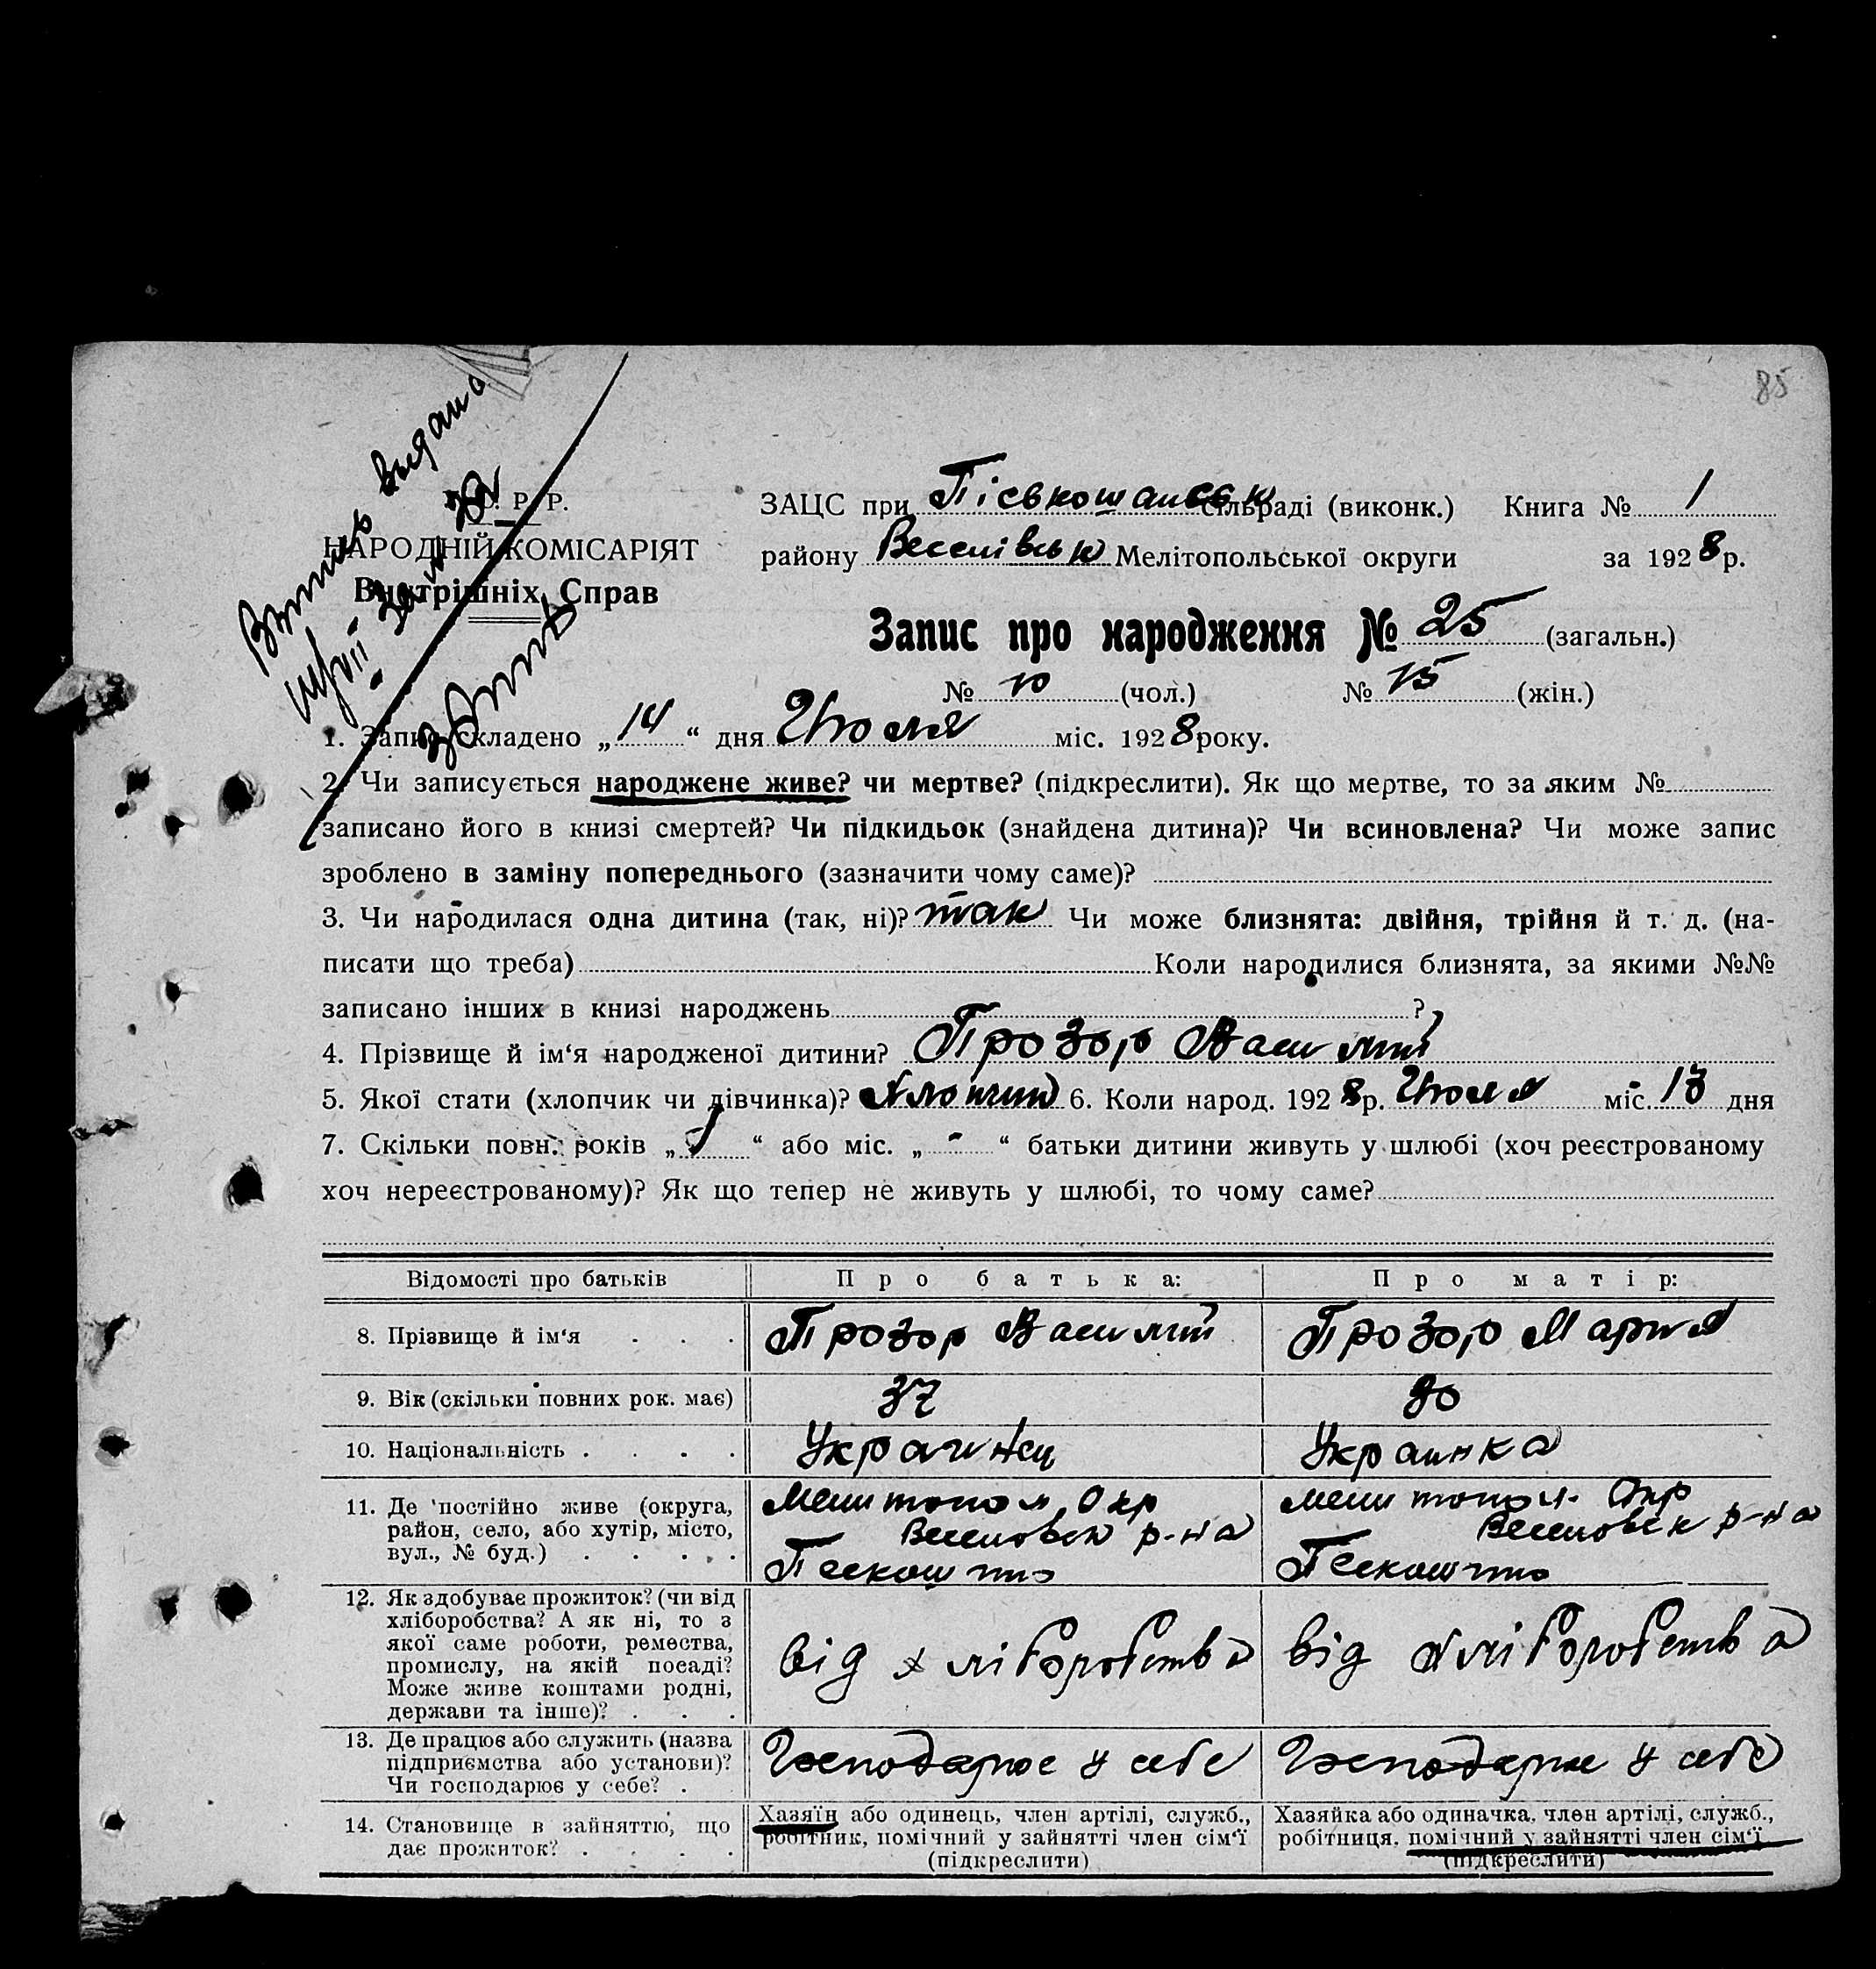 85
Выпись выдана
У. С. Р. Р.
НАРОДНІЙ КОМІСАРІЯТ
Внутрішніх Справ
ЗАЦС при Піскошанськ сільраді (виконк.) Книга № 1
району Веселівськ Мелітопольської округи за 1928 р.
Запис про народження № 25 (загальн.)
№ 10 (чол.) № 15 (жін.)
1. Запис складено „14“ дня Июля міс. 1928 року.
2. Чи записується народжене живе? чи мертве? (підкреслити). Як що мертве, то за яким №
записано його в книзі смертей? Чи підкидьок (знайдена дитина)? Чи всиновлена? Чи може запис
зроблено в заміну попереднього (зазначити чому саме)?
3. Чи народилася одна дитина (так, ні)? так Чи може близнята: двійня, трійня й т. д. (на-
писати що треба) Коли народилися близнята, за якими №№
записано інших в книзі народжень ?
4. Прізвище й ім‘я народженої дитини? Прозор Василий
5. Якої стати (хлопчик чи дівчинка)? Хлопчик 6. Коли народ. 1928 р. Июля міс. 13 дня
7. Скільки повн. років „1“ або міс. „-“ батьки дитини живуть у шлюбі (хоч реєстрованому
хоч нереєстрованому)? Як що тепер не живуть у шлюбі, то чому саме?
Відомості про батьків Про батька: Про матір:
8. Прізвище й ім‘я . . . Прозор Василий Прозор Мария
9. Вік (скільки повних рок. має) 37 30
10. Національність . . . . Украинец Украинка
11. Де постійно живе (округа, район, село, або хутір, місто, вул., № буд.) . . . . .
Мелитопол. Окр Веселовск р-на Пескошино
Мелитопол. Окр Веселовск р-на Пескошино
12. Як здобуває прожиток? (чи від хліборобства? А як ні, то з якої саме роботи, ремества, промислу, на якій посаді? Може живе коштами родні, держави та інше)? . . .
від хліборобства
від хліборобства
13. Де працює або служить (назва підприємства або установи)? Чи господарює у себе? .
Господарює у себе
Господарює у себе
14. Становище в зайняттю, що дає прожиток? . . . .
Хазяїн або одинець, член артілі, служб., робітник, помічний у зайнятті член сім‘ї (підкреслити)
Хазяйка або одиначка, член артілі, служб., робітниця, помічний у зайнятті член сім‘ї (підкреслити)